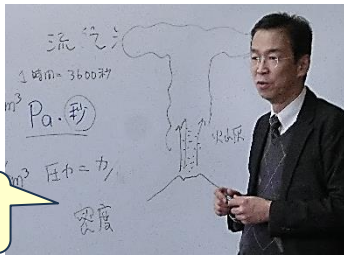 流
1時間=3600秒
m³
Pa・秒
m³ 圧力=力/
密度